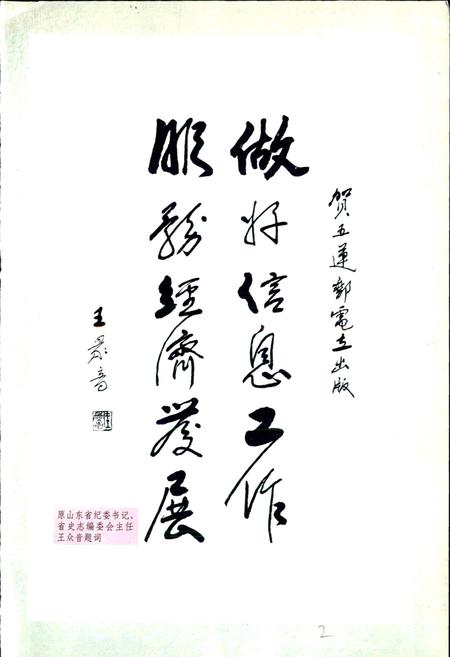 賀五蓮郵電志出版
做好信息工作
服務經濟發展
王眾音
原山东省纪委书记、
省史志编委会主任
王众音题词
2